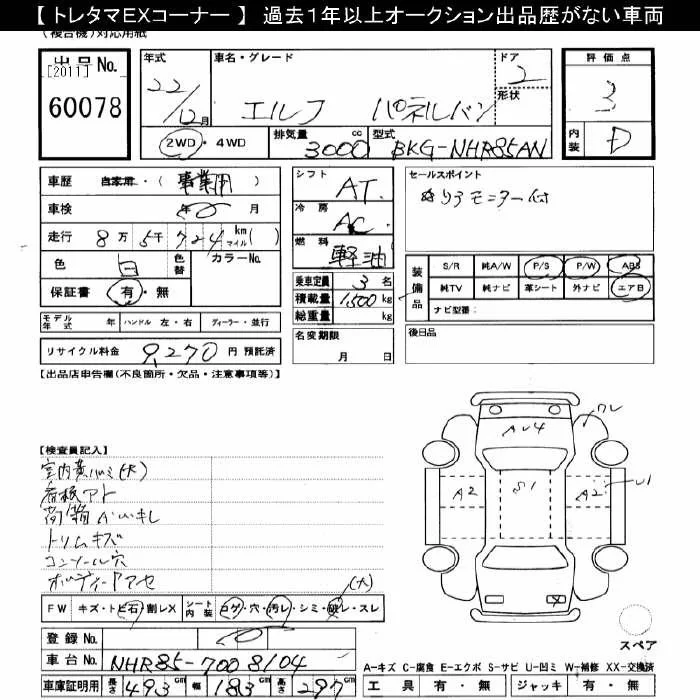 【 トレタマEXコーナー 】 過去1年以上オークション出品歴がない車両
(複合機)対応用紙
出品No.
[2011]
60078
年式
22/12月
車名・グレード
エルフ パネルバン
ドア
2
形状
評価点
3
内装
D
2WD・4WD
排気量
3000 cc
型式
BKG-NHR85AN
車歴 自家用・(事業用)
車検 年 月
走行 8万5千724 km マイル( )
色 白 色替 カラーNo.
保証書 有・無
シフト AT
冷房 AC
燃料 軽油
乗車定員 3名
積載量 1,500 kg
総重量 kg
セールスポイント
モニター付
装備品
S/R 純A/W P/S P/W ABS
純TV 純ナビ 革シート 外ナビ エアB
ナビ型番:
モデル年式 年 ハンドル 左・右 ディーラー・並行
リサイクル料金 9,270 円 預託済
名変期限
月 日
後日品
【出品店申告欄(不良箇所・欠品・注意事項等)】
【検査員記入】
看板アト
トリムキズ
コンソール穴
ボディーアセ
(大)
FW キズ・トビ石・割レX シート内装 コゲ・穴・汚レ・シミ・破レ・スレ
登録No.
車台No. NHR85-7008104
車庫証明用 長さ 493 cm 幅 183 cm 高さ 297 cm
AU4
A2
S1
A2
U1
スペア
A-キズ C-腐食 E-エクボ S-サビ U-凹ミ W-補修 XX-交換済
工具 有・無 ジャッキ 有・無